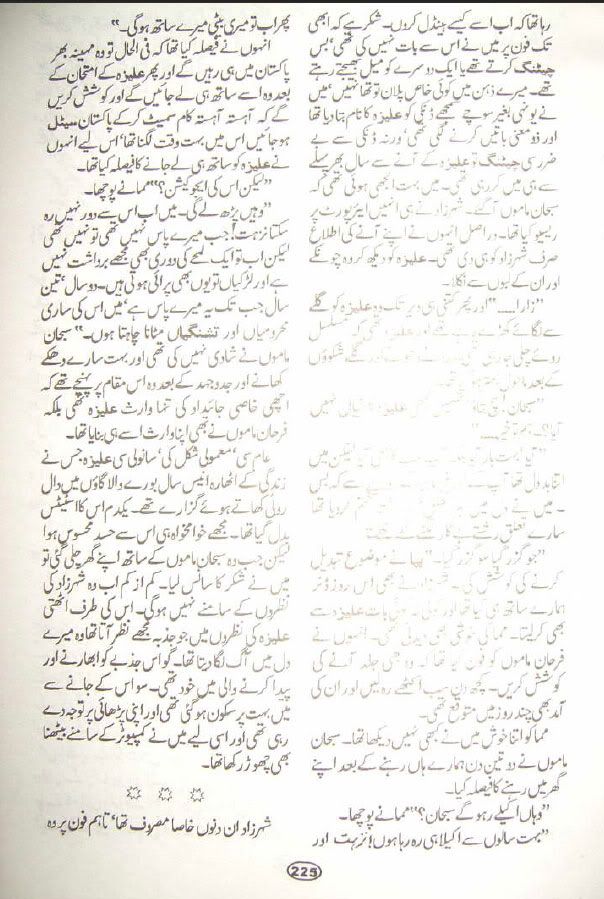 رہا تھا کہ اب اسے کیسے ہینڈل کروں۔ شکر ہے کہ ابھی
تک فون پر میں نے اس سے بات نہیں کی تھی، بس
چیٹنگ کرتے تھے یا ایک دوسرے کو میل بھیجتے رہتے
تھے۔ میرے ذہن میں کوئی خاص پلان تو تھا نہیں، میں
نے یونہی بغیر سوچے سمجھے ڈنکی کو علیزہ کا نام بتا دیا تھا
اور ذو معنی باتیں کرنے لگی تھی، ورنہ ڈنکی سے بے
ضرر سی چیٹنگ تو علیزہ کے آنے سے سال بھر پہلے
سے ہی میں کر رہی تھی۔ میں بہت الجھی ہوئی تھی کہ
سبحان ماموں آگئے۔ شہزاد نے ہی انہیں ایئرپورٹ پر
ریسیو کیا تھا۔ دراصل انھوں نے اپنے آنے کی اطلاع
صرف شہزاد کو ہی دی تھی۔ علیزہ کو دیکھ کر وہ چونکے
اور ان کے لبوں سے نکلا۔
"زارا......" اور پھر کتنی ہی دیر تک وہ علیزہ کو گلے
سے لگائے کھڑے اور علیزہ تھی کہ مسلسل
روئے چلی جا شکوؤں
کے بعد ماموں
"سبحان نہیں
آیا؟ ......"
لیکن میں
اتنا بددل تھا کہ بس
میں نے
سارے تعلق رشتے
"جو گزر گیا سو گزر گیا۔" پپا نے موضوع تبدیل
کرنے کی کوشش کی۔ نے بھی اس روز ڈنر
ہمارے ساتھ ہی کیا تھا اور کوئی بات علیزہ سے
بھی کر لیتا۔ مما کی خوشی بھی دیدنی تھی۔ انہوں نے
فرحان ماموں کو فون کیا تھا کہ وہ بھی جلد آنے کی
کوشش کریں۔ کچھ دن سب اکٹھے رہ لیں اور ان کی
آمد بھی چند روز میں متوقع تھی۔
مما کو اتنا خوش میں نے کبھی نہیں دیکھا تھا۔ سبحان
ماموں نے دو تین دن ہمارے ہاں رہنے کے بعد اپنے
گھر میں رہنے کا فیصلہ کیا۔
"وہاں اکیلے رہو گے سبحان؟" مما نے پوچھا۔
"بہت سالوں سے اکیلا ہی رہ رہا ہوں نزہت اور
پھر اب تو میری بیٹی میرے ساتھ ہوگی۔"
انہوں نے فیصلہ کیا تھا کہ فی الحال تو وہ مہینہ بھر
پاکستان میں ہی رہیں گے اور پھر علیزہ کے امتحان کے
بعد وہ اسے ساتھ ہی لے جائیں گے اور کوشش کریں
گے کہ آہستہ آہستہ کام سمیٹ کر کے پاکستان سیٹل
ہو جائیں اس میں بہت وقت لگنا تھا، اس لیے انہوں
نے علیزہ کو ساتھ ہی لے جانے کا فیصلہ کیا تھا۔
"لیکن اس کی ایجوکیشن؟" مما نے پوچھا۔
"وہیں پڑھ لے گی۔ میں اب اس سے دور نہیں رہ
سکتا نزہت! جب میرے پاس نہیں تھی تو نہیں تھی
لیکن اب تو ایک لمحے کی دوری بھی مجھے برداشت نہیں
ہے اور لڑکیاں تو یوں بھی پرائی ہوتی ہیں۔ دو سال، تین
سال جب تک یہ میرے پاس ہے، میں اس کی ساری
محرومیاں اور تشنگیاں مٹانا چاہتا ہوں۔" سبحان
ماموں نے شادی نہیں کی تھی اور بہت سارے دھکے
کھانے اور جدوجہد کے بعد وہ اس مقام پر پہنچے تھے کہ
اچھی خاصی جائیداد کی تنہا وارث علیزہ تھی بلکہ
فرحان ماموں نے بھی اپنا وارث اسے ہی بنایا تھا۔
عام سی، معمولی شکل کی، سانولی سی علیزہ جس نے
زندگی کے اٹھارہ انیس سال بورے والا گاؤں میں دال
روٹی کھاتے ہوئے گزارے تھے۔ یکدم اس کا اسٹیٹس
بدل گیا تھا۔ مجھے خوامخواہ ہی اس سے حسد محسوس ہوا
لیکن جب وہ سبحان ماموں کے ساتھ اپنے گھر چلی گئی تو
میں نے شکر کا سانس لیا۔ کم از کم اب وہ شہزاد کی
نظروں کے سامنے نہیں ہوگی۔ اس کی طرف اٹھتی
علیزہ کی نظروں میں جو جذبہ مجھے نظر آتا تھا وہ میرے
دل میں آگ لگا دیتا تھا۔ گو اس جذبے کو ابھارنے اور
پیدا کرنے والی میں خود تھی۔ سو اس کے جانے سے
میں بہت پرسکون ہو گئی تھی اور اپنی پڑھائی پر توجہ دے
رہی تھی اور اسی لیے میں نے کمپیوٹر کے سامنے بیٹھنا
بھی چھوڑ رکھا تھا۔
شہزاد ان دنوں خاصا مصروف تھا، تاہم فون پر وہ
225